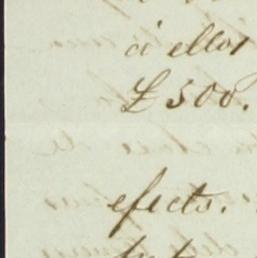 á ellos
£ 500.
efects.